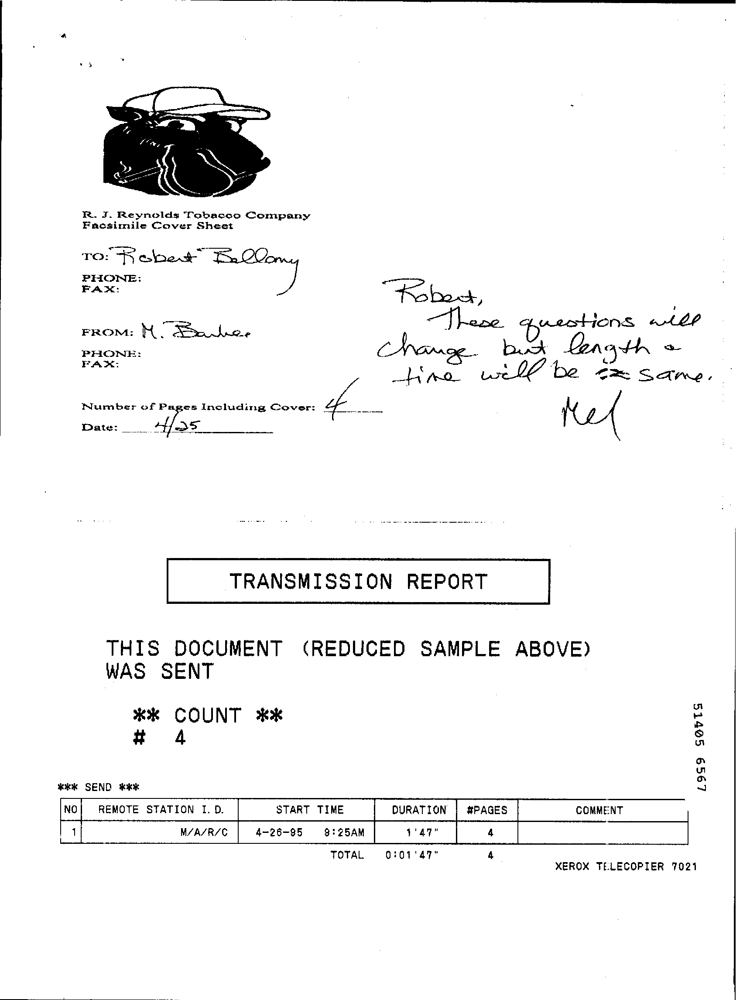 R. J. Reynolds Tobacco Company
Facsimile Cover Sheet
TO: Robert Bellamy
PHONE:
FAX:
FROM: M. Barker
PHONE:
FAX:
Number of Pages Including Cover: 4
Date: 4/25
Robert,
These questions will
change but length &
time will be same.
Mel
TRANSMISSION REPORT
THIS DOCUMENT (REDUCED SAMPLE ABOVE)
WAS SENT
** COUNT **
# 4
*** SEND ***
NO REMOTE STATION I.D. START TIME DURATION #PAGES COMMENT
1 M/A/R/C 4-26-95 9:25AM 1'47" 4
TOTAL 0:01'47" 4
XEROX TELECOPIER 7021
51405 6567